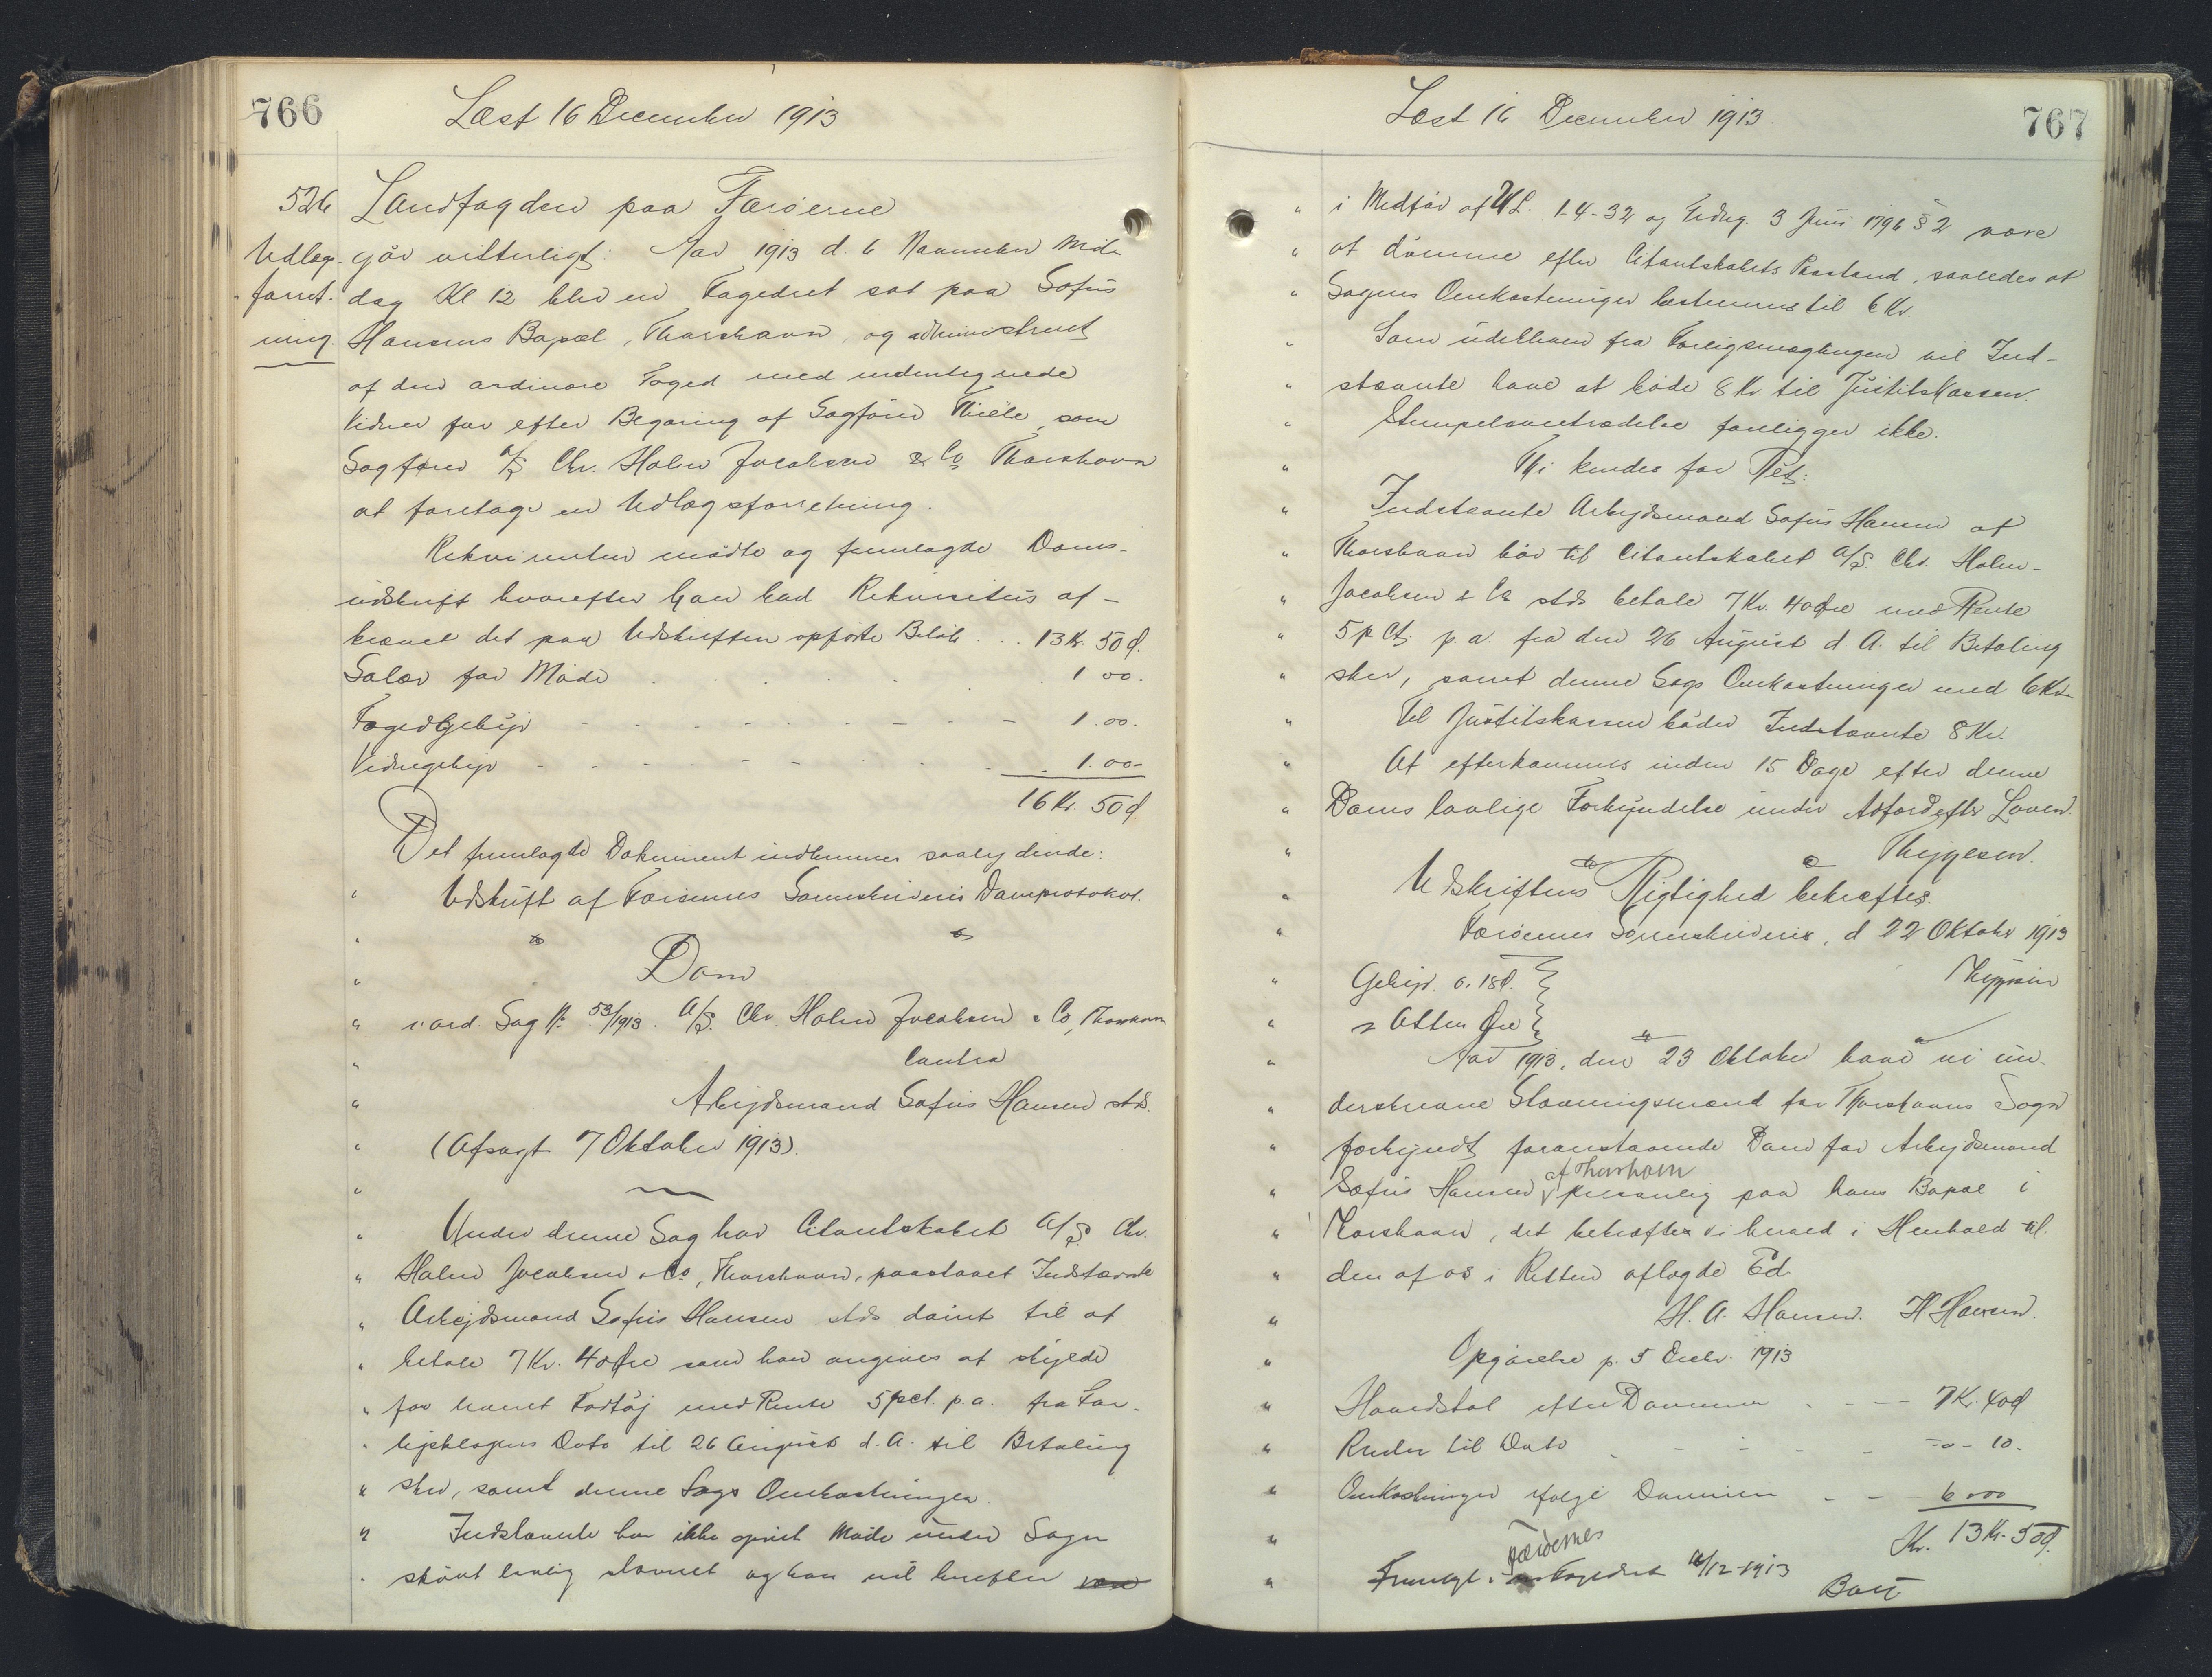 766
Læst 16 December 1913
526
Udlægs-
forret-
ning.
Landfogden paa Færøerne
gör vitterligt: Aar 1913 d. 6 November Mid-
dag Kl 12 blev en Fogedret sat paa Sofus
Hansens Bopæl, Thorshavn, og administreret
af den ordinære Foged med undertegnede
Vidner for efter Begæring af Sagfører Thiele, som
Sagfører A/S Chr. Holm Jacobsen & Co Thorshavn
at foretage en Udlægsforretning.
Rekvirenten mödte og fremlagde Doms-
udskrift hvorefter han bad Rekvisitus af-
krævet det paa Udskriften opførte Beløb . . 13 Kr. 50 Ø.
Salær for Møde 1 00.
Fogedgebyr 1.00.
Vidnegebyr 1.00-
16 Kr. 50 Ø
Det fremlagte Dokument indkommer saalydende:
" Udskrift af Færøernes Sorenskriveris Domprotokol.
"
" Dom
" i ord. Sag № 53/1913. A/S. Chr. Holm Jacobsen & Co, Thorshavn
" Contra
" Arbejdsmand Sofus Hansen stds.
" (Afsagt 7 Oktober 1913).
"
" Under denne Sag har Citantskabet A/S Chr.
" Holm Jacobsen & Co, Thorshavn, paastaaet Indstævnte
" Arbejdsmand Sofus Hansen stds dömt til at
" betale 7 Kr. 40 Øre som han angives at skylde
" for leveret Fodtøj med Rente 5 pct. p.a. fra For-
" ligsklagens Dato til 26 August d. A. til Betaling
" sker, samt denne Sags Omkostninger.
" Indstævnte har ikke givet Møde under Sagen
" skönt lovlig stævnet og han vil herefter være
Læst 16 December 1913.
767
" i Medför af N.L. 1-4-32 og Frdng. 3 Juni 1796 § 2 være
" at dömme efter Citantskabets Paastand, saaledes at
" Sagens Omkostninger bestemmes til 6 Kr.
" Som udebleven fra Forligsmæglingen vil Ind-
" stævnte have at böde 8 Kr. til Justitskassen.
" Stempelovertrædelse foreligger ikke.
" Thi kendes for Ret:
" Indstævnte Arbejdsmand Sofus Hansen af
" Thorshavn bör til Citantskabet A/S. Chr. Holm-
" Jacobsen & Co stds betale 7 Kr. 40 Øre med Rente
" 5 p Ct p.a. fra den 26 August d. A. til Betaling
" sker, samt denne Sags Omkostninger med 6 Kr.
" Til Justitskassen böder Indstævnte 8 Kr.
" At efterkommes inden 15 Dage efter denne
" Doms lovlige Forkyndelse under Adfærd efter Loven.
" Thejgesen.
" Udskriftens Rigtighed bekræftes.
" Færöernes Sorenskriveri, d 22 Oktober 1913
" Gebyr. 0. 18 Ø.
" = Atten Øre
" Aar 1913, den 23 Oktober have vi un-
" derskrevne Stævningsmænd for Thorshavns Sogn
" forkyndt foranstaaende Dom for Arbejdsmand
" Sofus Hansen af Thorshavn personlig paa hans Bopæl i
" Thorshavn, det bekræfter vi herved i Henhold til
" den af os i Retten aflagde Ed
" H. A. Hansen. H Hansen.
" Opgørelse p. 5 Decbr. 1913
" Hovedstol efter Dommen 7 Kr. 40 Ø
" Renter til Dato -"- 10.
" Omkostninger ifølge Dommen 6 00
" Kr. 13 Kr. 50 Ø.
" Fremlagt i Færøernes Fogedret 6/12-1913